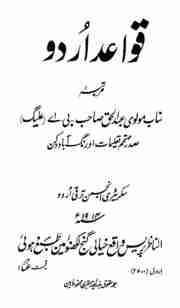 قواعد اُردو
نوشتہ
جناب مولوی عبدالحق صاحب بی اے (علیگ)
صدر مہتمم تعلیمات اورنگ آباد دکن
سکرٹری انجمن ترقی اُردو
۱۹۱۴ء
الناظر پریس واقع خیالی گنج لکھنؤ میں طبع ہوئی